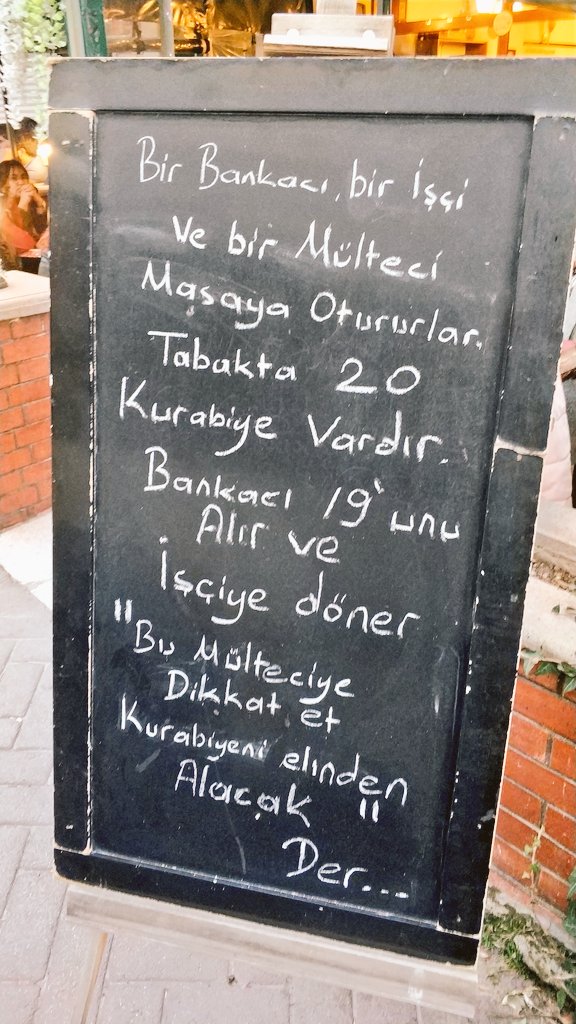 Bir Bankacı, bir İşçi
Ve bir Mülteci
Masaya Otururlar.
Tabakta 20
Kurabiye Vardır.
Bankacı 19'unu
Alır ve
İşçiye döner
"Bu Mülteciye
Dikkat et
Kurabiyeni elinden
Alacak"
Der...